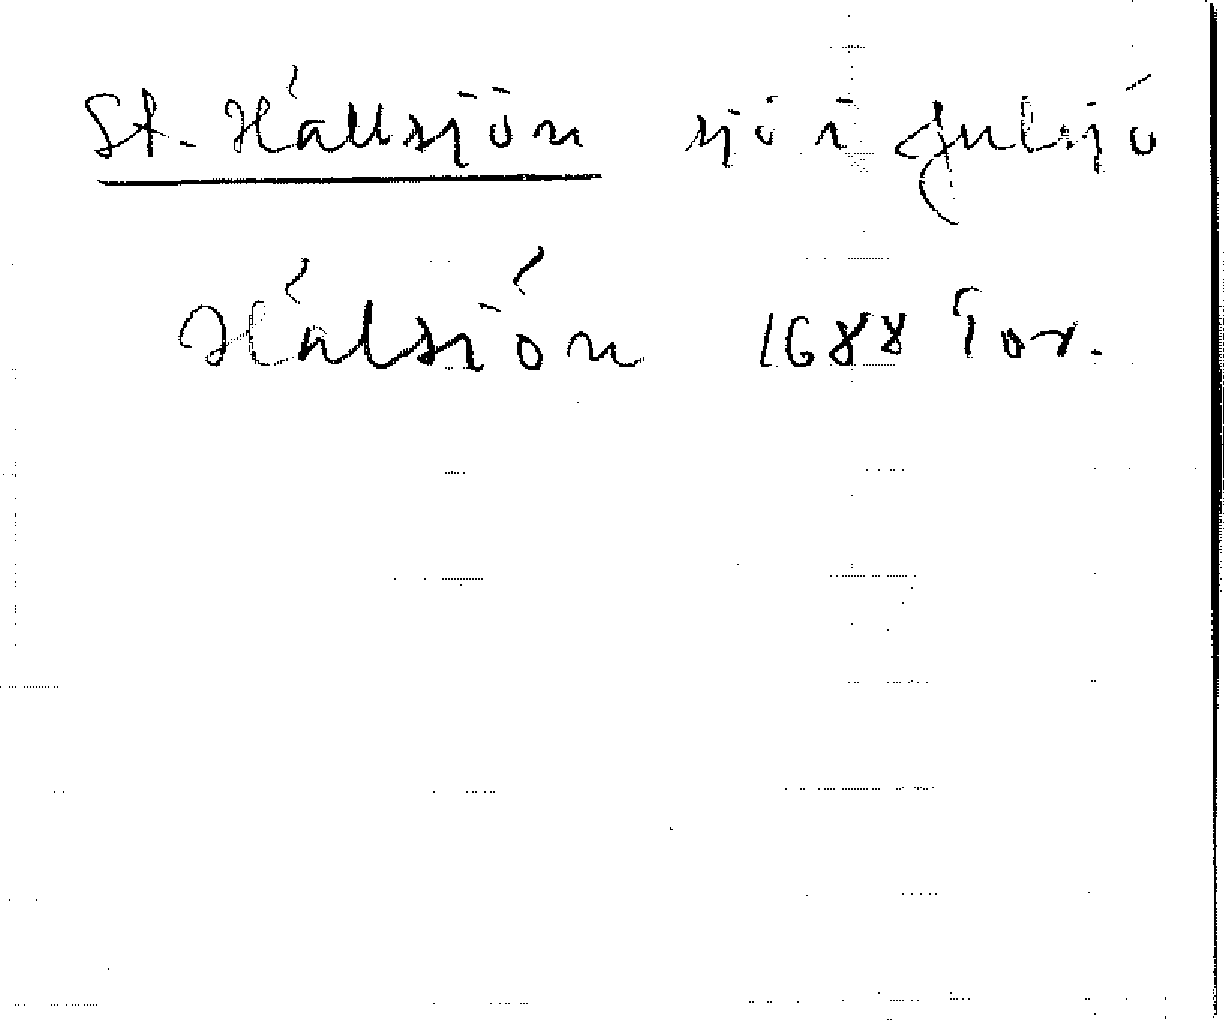 St. Hällsjön sjö i Gulsjö
Hälsiön 1688 Tor.